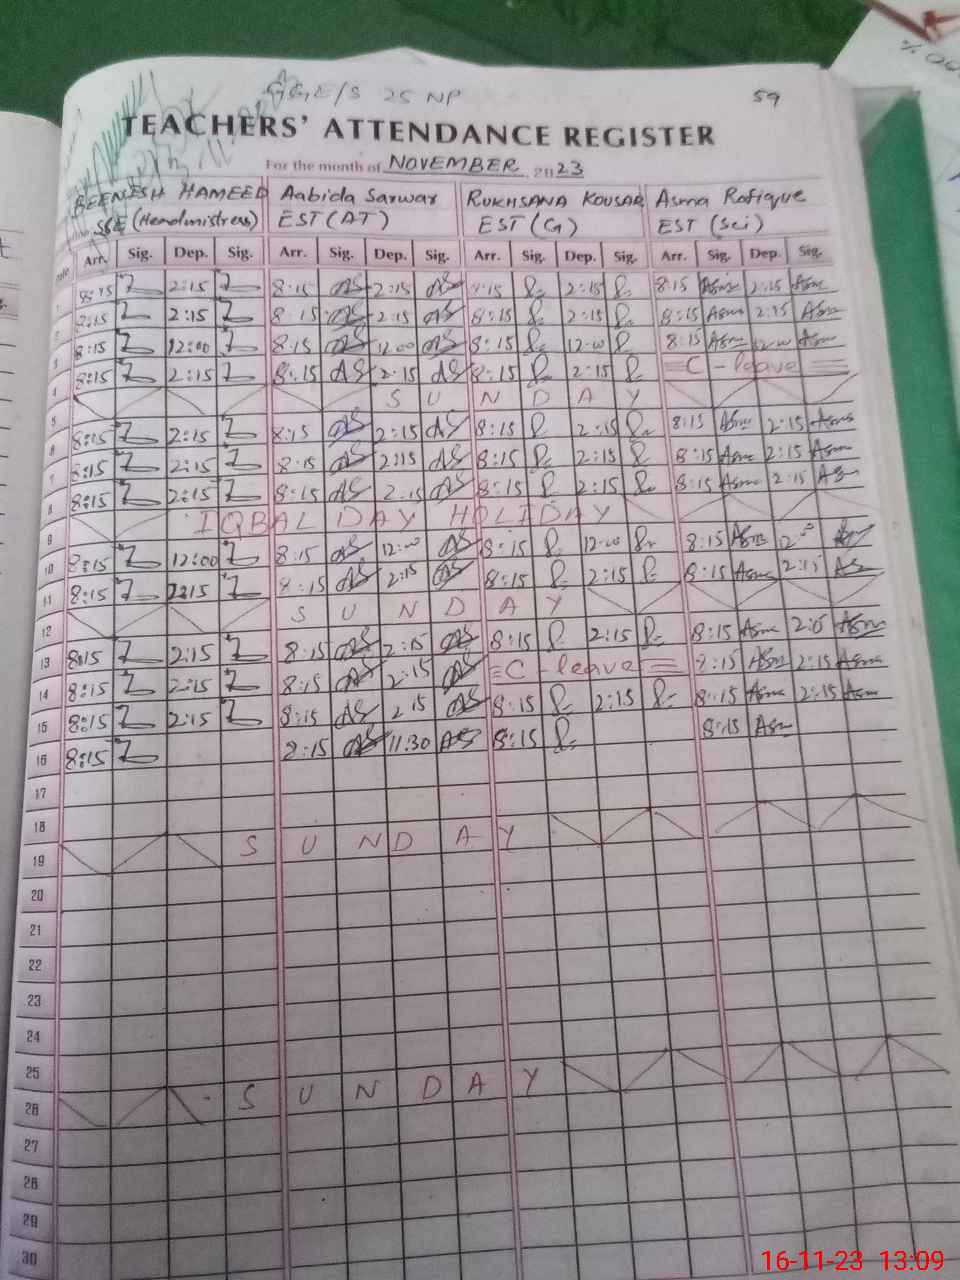 GGE/S 25 NP 59
TEACHERS' ATTENDANCE REGISTER
For the month of NOVEMBER 2023
BEENESH HAMEED Aabida Sarwar RUKHSANA KOUSAR Asma Rafique
SSE (Headmistress) EST (AT) EST (G) EST (Sci)
Arr. Sig. Dep. Sig. Arr. Sig. Dep. Sig. Arr. Sig. Dep. Sig. Arr. Sig. Dep. Sig.
1 8:15 2:15 8:15 AS 2:15 AS 8:15 2:15 8:15 Asma 2:15 Asma
2 8:15 2:15 8:15 AS 2:15 AS 8:15 2:15 8:15 Asma 2:15 Asma
3 8:15 12:00 8:15 AS 12:00 AS 8:15 12:00 8:15 Asma 12:00 Asma
4 8:15 2:15 8:15 AS 2:15 AS 8:15 2:15 C-leave
5 SUNDAY
6 8:15 2:15 8:15 AS 2:15 AS 8:15 2:15 8:15 Asma 2:15 Asma
7 8:15 2:15 8:15 AS 2:15 AS 8:15 2:15 8:15 Asma 2:15 Asma
8 8:15 2:15 8:15 AS 2:15 AS 8:15 2:15 8:15 Asma 2:15
9 IQBAL DAY HOLIDAY
10 8:15 12:00 8:15 AS 12:00 AS 8:15 12:00 8:15 Asma 12:00
11 8:15 2:15 8:15 AS 2:15 AS 8:15 2:15 8:15 Asma 2:15
12 SUNDAY
13 8:15 2:15 8:15 AS 2:15 AS 8:15 2:15 8:15 Asma 2:15 Asma
14 8:15 2:15 8:15 AS 2:15 AS C-leave 8:15 Asma 2:15 Asma
15 8:15 2:15 8:15 AS 2:15 AS 8:15 2:15 8:15 Asma 2:15 Asma
16 8:15 8:15 AS 11:30 AS 8:15 8:15 Asma
17
18
19 SUNDAY
20
21
22
23
24
25
26 SUNDAY
27
28
29
30
16-11-23 13:09